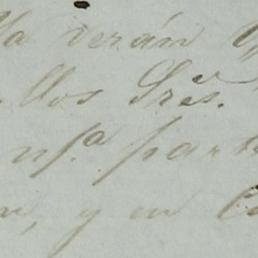 Ya verán
llos Sres.
nſa. part
y en